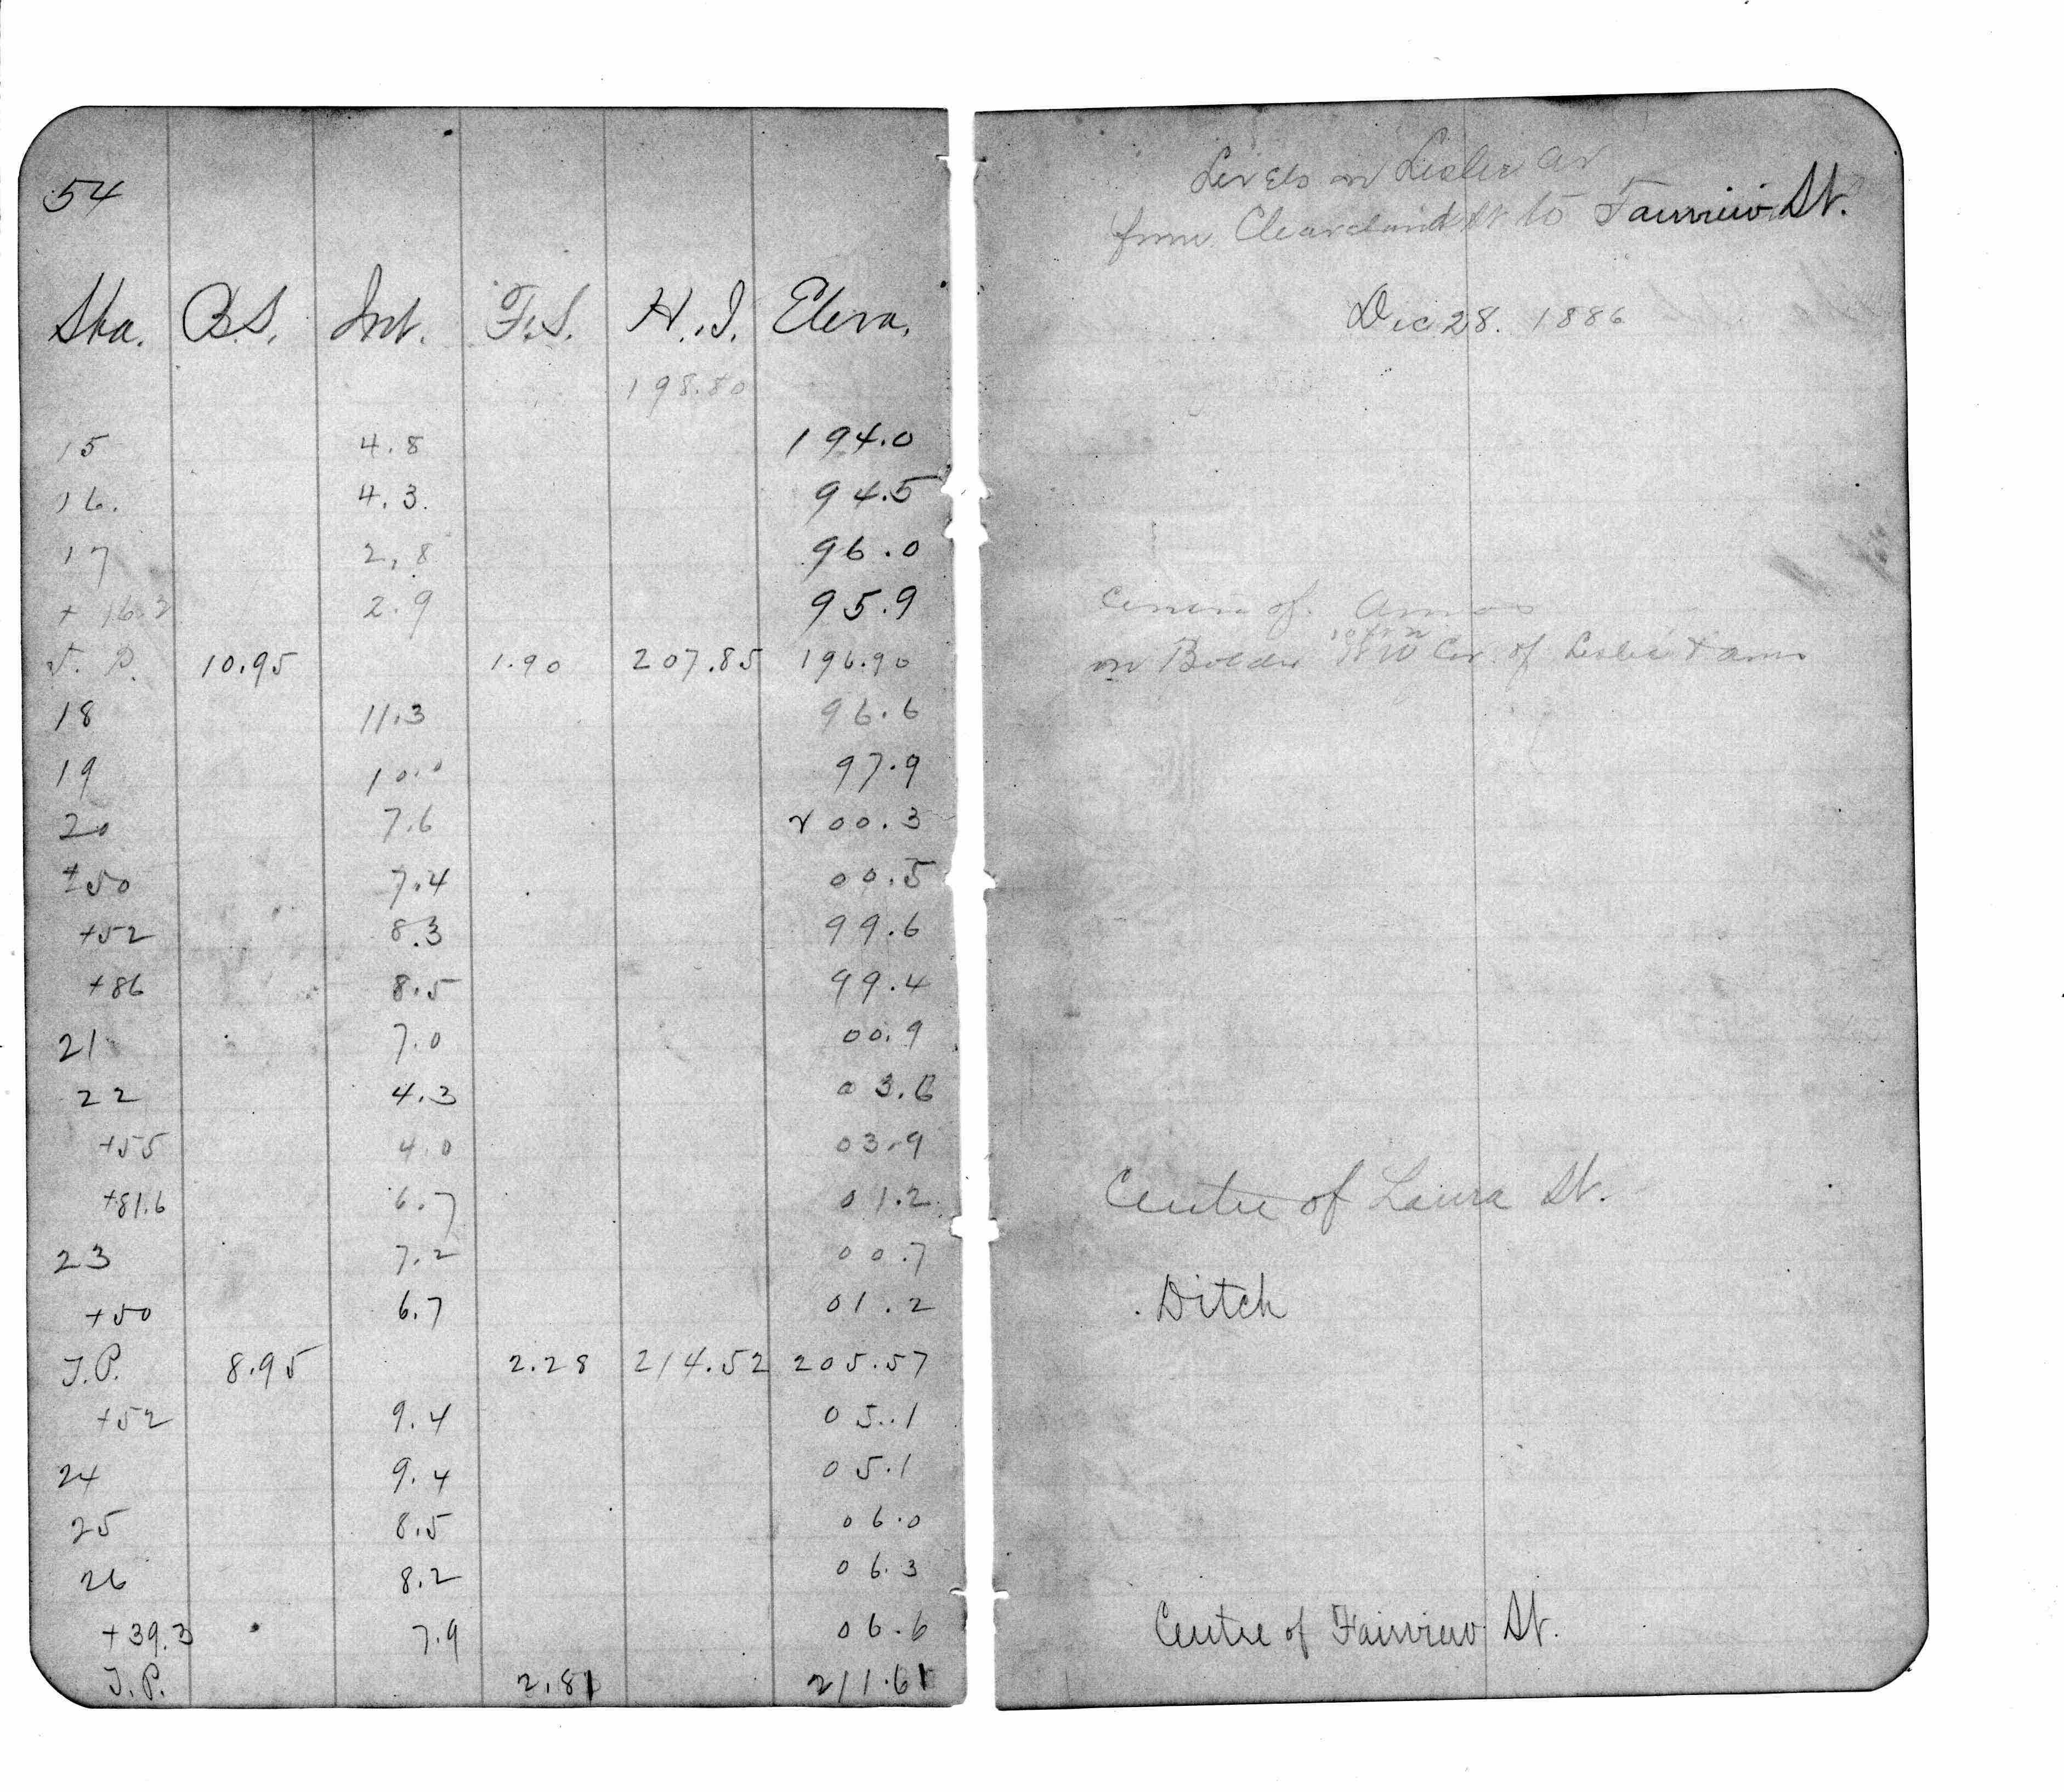 54
Sta. B.S. Int. F.S. H.I. Eleva.
198.80
15 4.8 194.0
16. 4.3. 94.5
17 2.8 96.0
+ 16.2 2.9 95.9
T. P. 10.95 1.90 207.85 196.90
18 11.3 96.6
19 10.0 97.9
20 7.6 200.3
+50 7.4 00.5
+52 8.3 99.6
+86 8.5 99.4
21 7.0 00.9
22 4.3 03.6
+55 4.0 03.9
+81.6 6.7 01.2
23 7.2 00.7
+50 6.7 01.2
T.P. 8.95 2.28 214.52 205.57
+52 9.4 05.1
24 9.4 05.1
25 8.5 06.0
26 8.2 06.3
+39.3 7.9 06.6
T.P. 2.81 211.61
Levels on Leslie av
from Cleaveland St to Fairview St.
Dec 28. 1886
Centre of
on Cor. of Leslie &
Centre of Laura St.
Ditch
Centre of Fairview St.